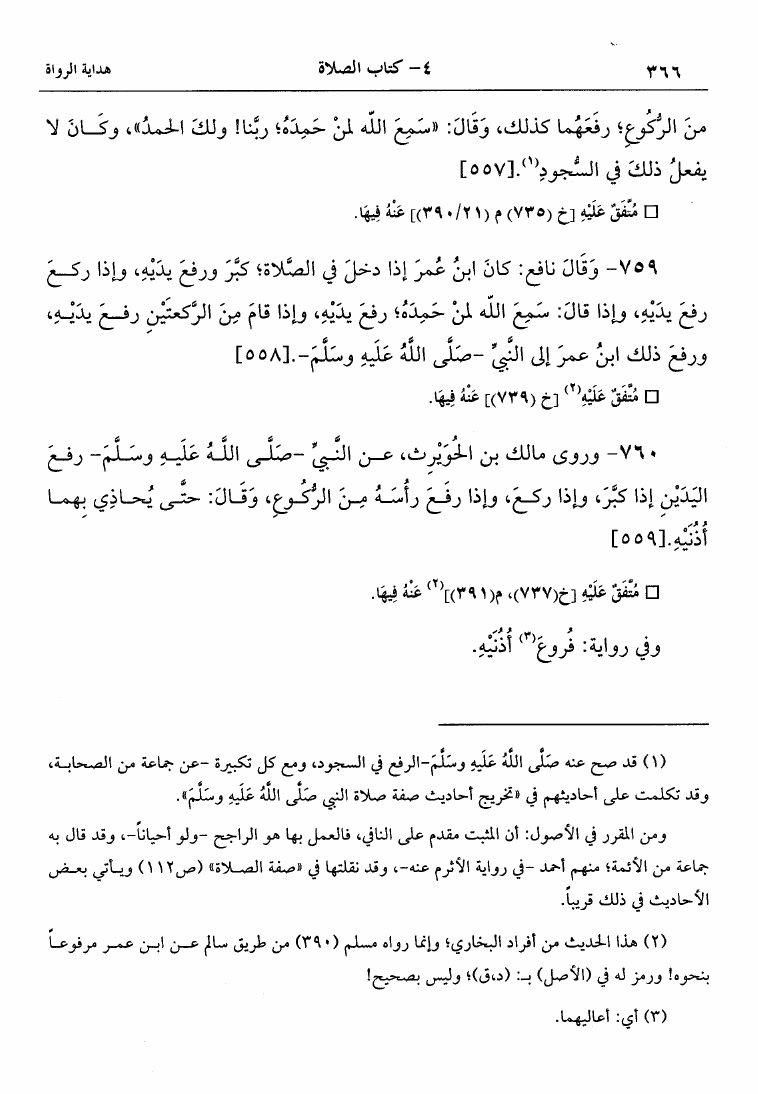 ٣٦٦ ٤- كتاب الصلاة هداية الرواة
منَ الرُّكُوعِ؛ رفَعَهُما كذلك، وَقَالَ: «سَمِعَ اللّه لمنْ حَمِدَهُ؛ ربَّنا! ولكَ الحمدُ»، وكَـانَ لا
يفعلُ ذلكَ في السُّجودِ(١).[٥٥٧]
□ مُتَّفَقٌ عَلَيْهِ [خ (٧٣٥) م (٣٩٠/٢١)] عَنْهُ فِيهَا.
٧٥٩- وَقَالَ نافع: كانَ ابنُ عُمرَ إذا دخلَ في الصَّلاة؛ كبَّرَ ورفعَ يدَيْهِ، وإذا ركـعَ
رفعَ يدَيْهِ، وإذا قالَ: سَمِعَ اللّه لمنْ حَمِدَهُ؛ رفعَ يدَيْهِ، وإذا قامَ مِنَ الرَّكعتَيْنِ رفـعَ يدَيْـهِ،
ورفعَ ذلك ابنُ عمرَ إلى النَّبيِّ -صَلَّى اللَّهُ عَلَيهِ وسَلَّمَ-.[٥٥٨]
□ مُتَّفَقٌ عَلَيْهِ(٢) [خ (٧٣٩)] عَنْهُ فِيهَا.
٧٦٠- وروى مالك بن الحُوَيْرِث، عـن النَّبيِّ -صَلَّـى اللَّـهُ عَلَيـهِ وسَـلَّمَ- رفـعَ
اليَدَيْنِ إذا كبَّرَ، وإذا ركعَ، وإذا رفَـعَ رأسَـهُ مِـنَ الرُّكُـوعِ، وَقَـالَ: حتَّـى يُحـاذِي بِهمـا
أُذُنَيْهِ.[٥٥٩]
□ مُتَّفَقٌ عَلَيْهِ [خ(٧٣٧)، م(٣٩١)](٢) عَنْهُ فِيهَا.
وفي رواية: فُروعَ(٣) أُذُنَيْهِ.
(١) قد صح عنه صَلَّى اللَّهُ عَلَيهِ وسَلَّمَ-الرفع في السجود، ومع كل تكبيرة -عن جماعة من الصحابـة،
وقد تكلمت على أحاديثهم في «تخريج أحاديث صفة صلاة النبي صَلَّى اللَّهُ عَلَيهِ وسَلَّمَ».
ومن المقرر في الأصول: أن المثبت مقدم على النافي، فالعمل بها هو الراجح -ولو أحياناً-، وقد قال به
جماعة من الأئمة؛ منهم أحمد -في رواية الأثرم عنه-، وقد نقلتها في «صفة الصـلاة» (ص١١٢) ويـأتي بعـض
الأحاديث في ذلك قريباً.
(٢) هذا الحديث من أفراد البخاري؛ وإنما رواه مسلم (٣٩٠) من طريق سالم عـن ابـن عمـر مرفوعـاً
بنحوه! ورمز له في (الأصل) بـ: (د،ق)؛ وليس بصحيح!
(٣) أي: أعاليهما.